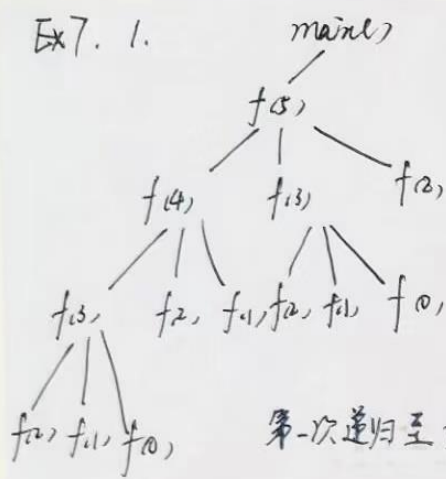 Ex7. 1. main()
f(5)
f(4) f(3) f(2)
f(3) f(2) f(1) f(2) f(1) f(0)
f(2) f(1) f(0) 第一次递归至